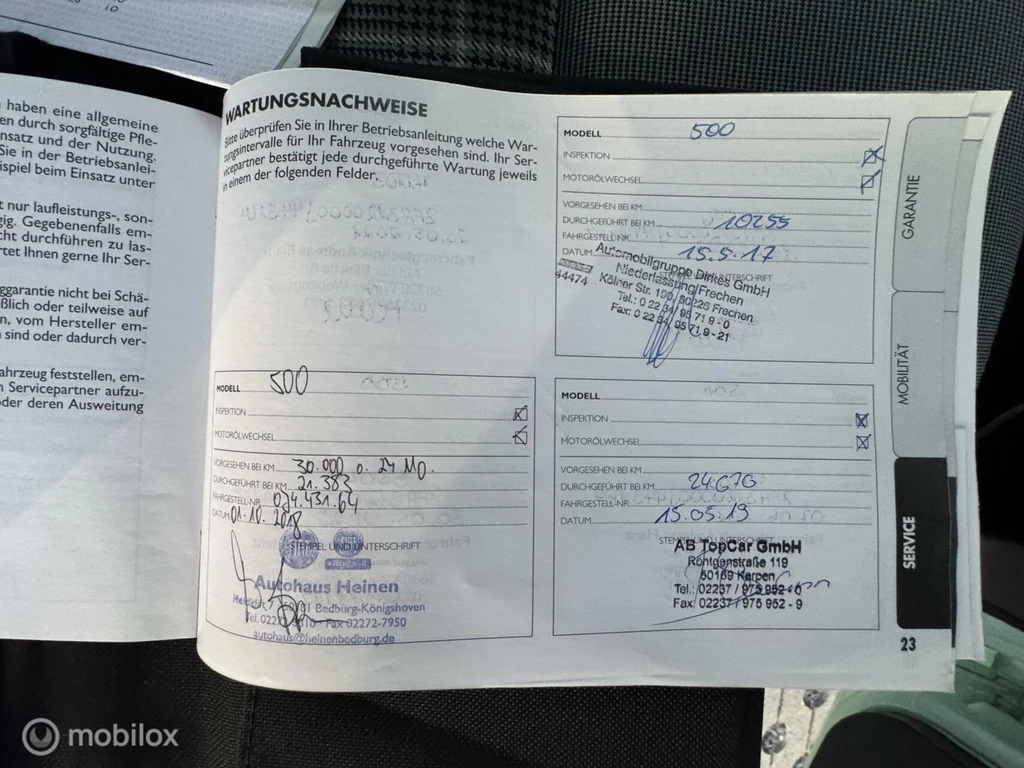 haben eine allgemeine
en durch sorgfältige Pfle-
nsatz und der Nutzung.
Sie in der Betriebsanlei-
ispiel beim Einsatz unter
t nur laufleistungs-, son-
gig. Gegebenenfalls em-
cht durchführen zu las-
rtet Ihnen gerne Ihr Ser-
ggarantie nicht bei Schä-
ßlich oder teilweise auf
n, vom Hersteller em-
sind oder dadurch ver-
ahrzeug feststellen, em-
n Servicepartner aufzu-
oder deren Ausweitung
WARTUNGSNACHWEISE
Bitte überprüfen Sie in Ihrer Betriebsanleitung welche War-
tungsintervalle für Ihr Fahrzeug vorgesehen sind. Ihr Ser-
vicepartner bestätigt jede durchgeführte Wartung jeweils
in einem der folgenden Felder.
MODELL 500
INSPEKTION
MOTORÖLWECHSEL
VORGESEHEN BEI KM
DURCHGEFÜHRT BEI KM 10255
FAHRGESTELL-NR.
DATUM 15.5.17
STEMPEL UND UNTERSCHRIFT
Automobilgruppe Dirkes GmbH
Niederlassung Frechen
44474
Kölner Str. 100, 50226 Frechen
Tel.: 0 22 34 95 71 9 - 0
Fax: 0 22 34 95 71 9 - 21
MODELL 500
INSPEKTION
MOTORÖLWECHSEL
VORGESEHEN BEI KM 30.000 o. 24 Mo.
DURCHGEFÜHRT BEI KM 21.383
FAHRGESTELL-NR. 074.431.64
DATUM 01.10.2018
STEMPEL UND UNTERSCHRIFT
Autohaus Heinen
Bedburg-Königshoven
Fax 02272-7950
autohaus@heinenbedburg.de
MODELL
INSPEKTION
MOTORÖLWECHSEL
VORGESEHEN BEI KM
DURCHGEFÜHRT BEI KM 24.670
FAHRGESTELL-NR.
DATUM 15.05.19
STEMPEL UND UNTERSCHRIFT
AB TopCar GmbH
Röntgenstraße 119
50169 Kerpen
Tel.: 02237 / 975 952 - 0
Fax: 02237 / 975 952 - 9
GARANTIE
MOBILITÄT
SERVICE
23
mobilox